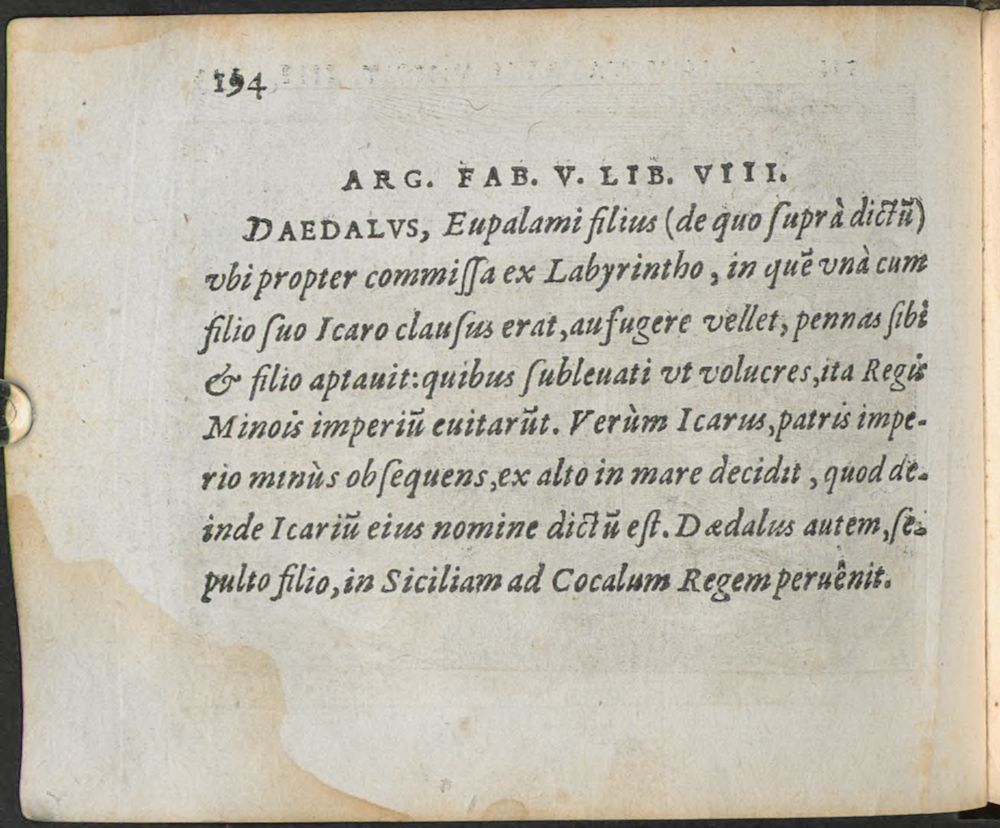 194
ARG. FAB. V. LIB. VIII.
DAEDALVS, Eupalami filius (de quo ſuprà dictũ)
vbi propter commiſſa ex Labyrintho, in quẽ vnà cum
filio ſuo Icaro clauſus erat, aufugere vellet, pennas ſibi
& filio aptauit: quibus ſubleuati vt volucres, ita Regis
Minois imperiũ euitarũt. Verùm Icarus, patris impe-
rio minùs obſequens, ex alto in mare decidit, quod de-
inde Icariũ eius nomine dictũ eſt. Dædalus autem, ſe-
pulto filio, in Siciliam ad Cocalum Regem peruênit.